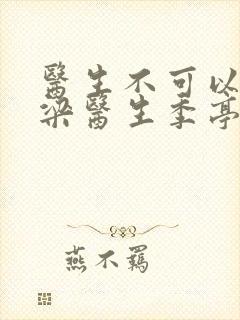 醫生不可以
梁醫生季亭
燕不羈